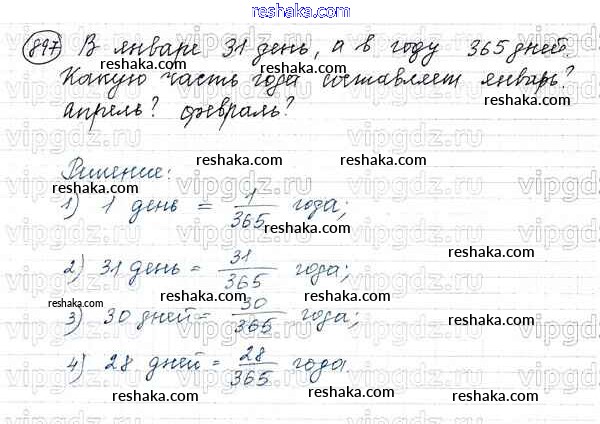 reshaka.com
897) В январе 31 день, а в году 365 дней.
Какую часть года составляет январь?
reshaka.com
апрель? февраль?
vipgdz.ru
reshaka.com reshaka.com reshaka.com
Решение:
1) 1 день = 1/365 года;
reshaka.com reshaka.com
2) 31 день = 31/365 года;
reshaka.com reshaka.com reshaka.com
3) 30 дней = 30/365 года;
reshaka.com reshaka.com
4) 28 дней = 28/365 года.
vipgdz.ru
reshaka.com reshaka.com reshaka.com